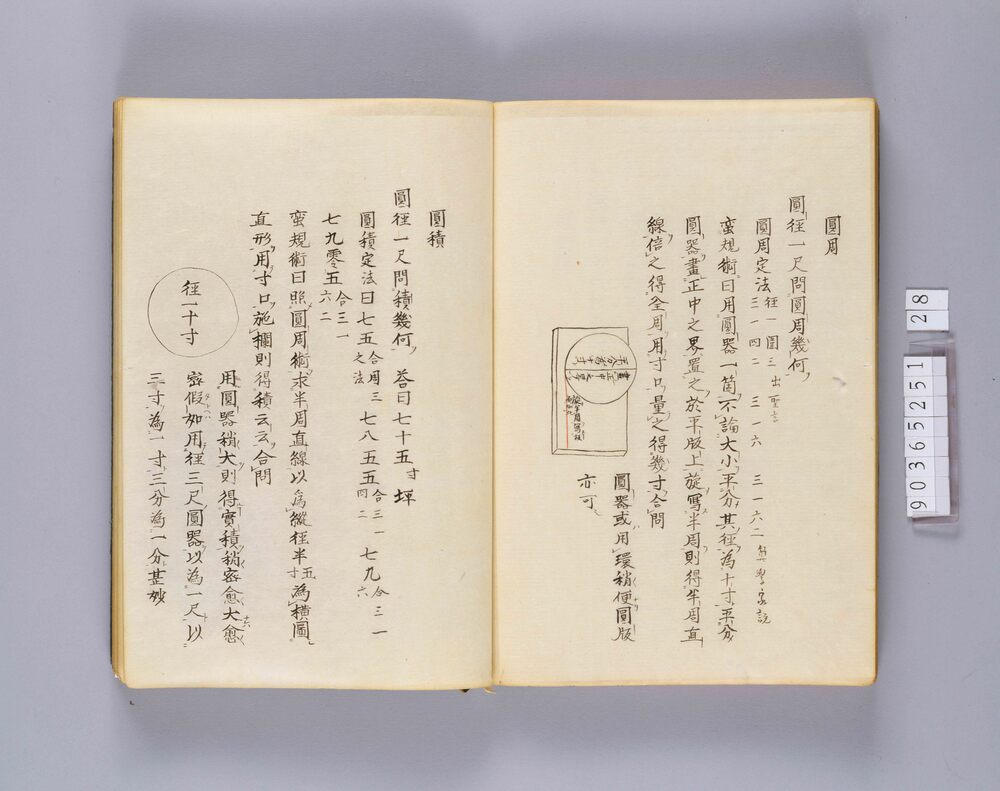 圓周
圓徑一尺問圓周幾何
圓周定法徑一圍三出聖言
三一四二 三一六 三一六二算學家説
蛮規術曰用圓器一箇不論大小平分其徑為十寸平分
圓器畫正中之界置之於平版上旋寫半周則得半周直
線信之得全周用寸口量之得幾寸合問
圓器或用環稍便圓版
亦可
圓積
圓徑一尺問積幾何 荅曰七十五寸坪
圓積定法曰七五合周三之法 七八五五合三一四二 七九合三一六
七九零五合三一六二
蛮規術曰照圓周術求半周直線以為縱徑半五寸為横圖
直形用寸口施欄則得積云云合問
徑一十寸
用圓器稍大則得實積稍密愈大愈
密假如用徑三尺圓器以為一尺以
三寸為一寸三分為一分甚妙
28
9036525251